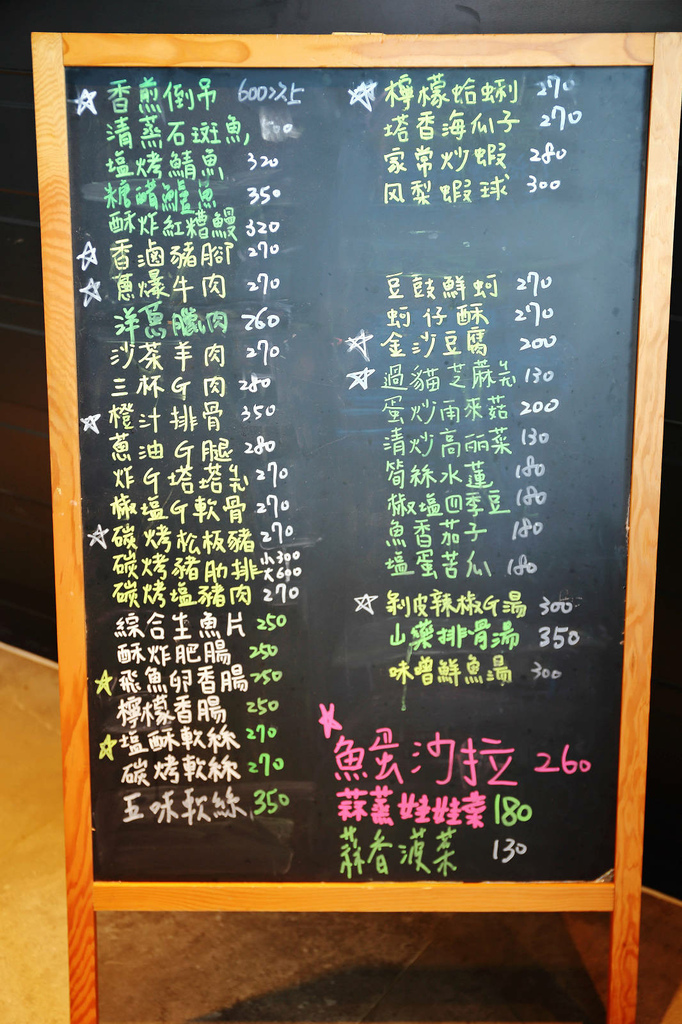 ☆香煎倒吊
清蒸石斑魚
塩烤鯖魚 320
糖醋鱸魚 350
酥炸紅糟鰻 320
☆香滷豬腳 270
☆蔥爆牛肉 270
洋蔥臘肉 260
沙茶羊肉 270
三杯G肉 280
☆橙汁排骨 350
蔥油G腿 280
炸G塔塔 270
椒塩G軟骨 270
☆碳烤松板豬 270
碳烤豬肋排 小300 大600
碳烤塩豬肉 270
綜合生魚片 250
酥炸肥腸 250
☆飛魚卵香腸 250
檸檬香腸 250
☆塩酥軟絲 270
碳烤軟絲 270
五味軟絲 350
☆檸檬蛤蜊 270
塔香海瓜子 270
家常炒蝦 280
风梨蝦球 300
豆豉鮮蚵 270
蚵仔酥 270
☆金沙豆腐 200
☆過貓芝蔴 130
蛋炒雨來菇 200
清炒高丽菜 130
筍絲水蓮 180
椒塩四季豆 180
魚香茄子 180
塩蛋苦瓜 180
☆剝皮辣椒G湯 300
山藥排骨湯 350
味噌鮮魚湯 300
☆魚蛋沙拉 260
蒜蒸娃娃菜 180
蒜香菠菜 130